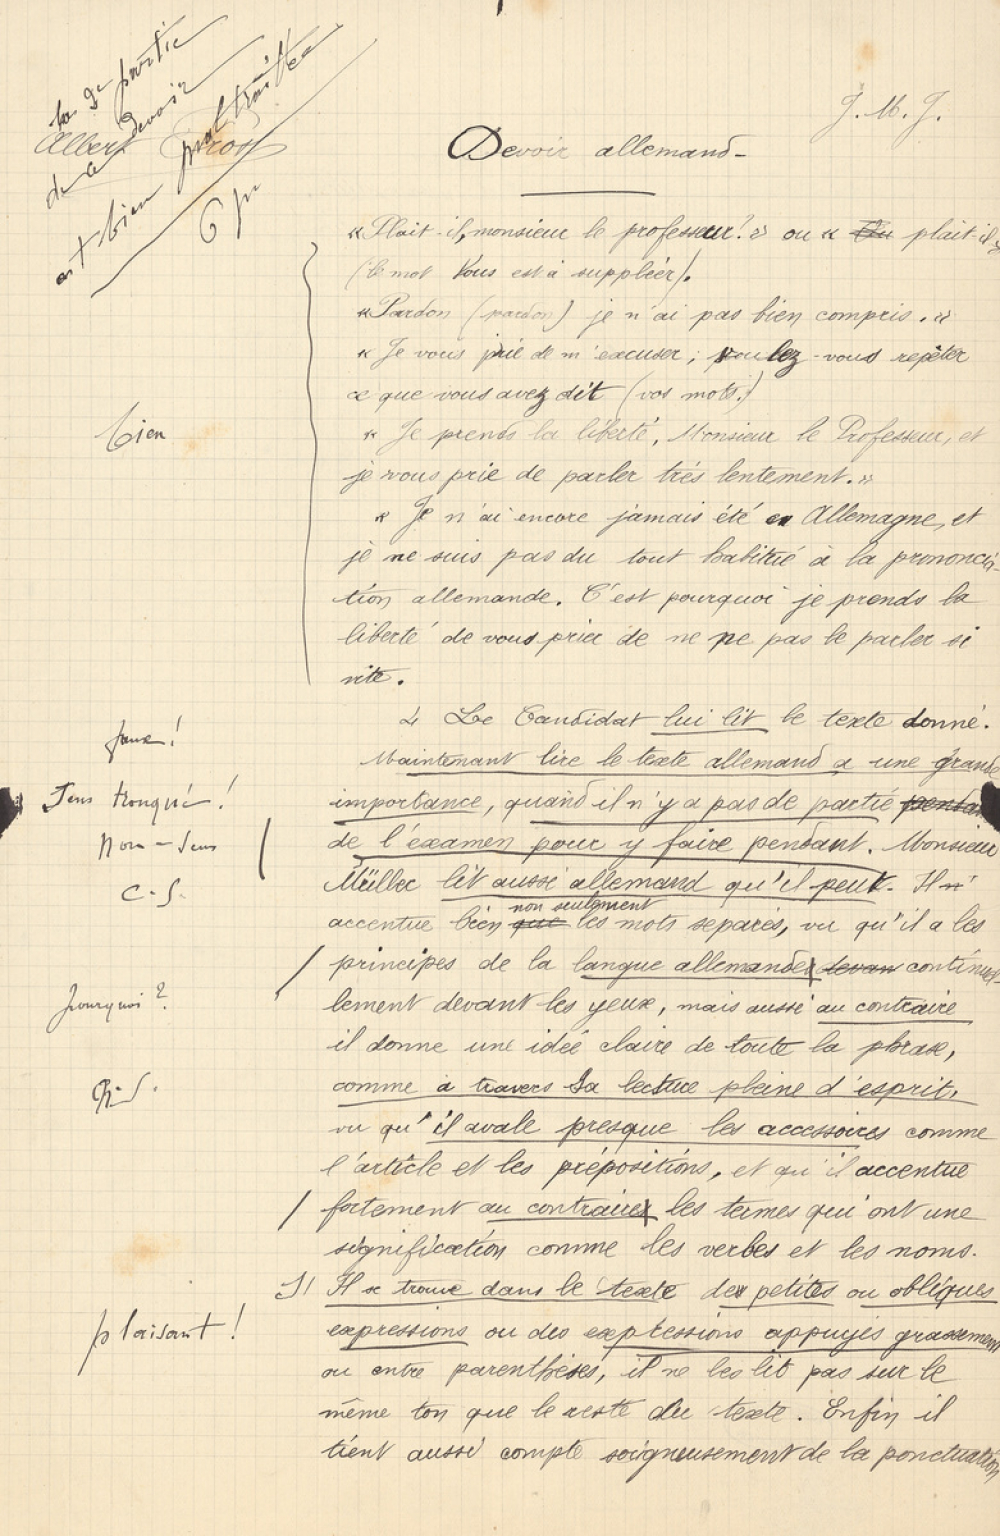 la 2e partie
du devoir
est bien mal traitée
6 pu
Albert Gross
J. M. J.
Devoir allemand-
« Plait-il, monsieur le professeur! » ou « Ou plait-il »
(le mot Vous est à suppléer).
« Pardon (pardon) je n'ai pas bien compris. »
« Je vous prie de m'excuser, voulez-vous repéter
ce que vous avez dit (vos mots.)
bien
« Je prends la liberté, Monsieur le Professeur, et
je vous prie de parler très lentement. »
« Je n'ai encore jamais été en Allemagne, et
je ne suis pas du tout habitué à la prononcia-
tion allemande. C'est pourquoi je prends la
liberté de vous prier de ne pas le parler si
vite.
Le Candidat lui lit le texte donné.
faux!
Maintenant lire le texte allemand a une grande
Sens tronqué!
importance, quand il n'y a pas de partie pendan
non-sens
de l'éxamen pour y faire pendant. Monsieur
C-S.
Müller lit aussi allemand qu'il peut. Il n'
non seulement
accentue bien que les mots separés, vu qu'il a les
principes de la langue allemande devan continuel-
lement devant les yeux, mais aussi au contraire
pourquoi?
il donne une idée claire de toute la phrase,
comme à travers sa lecture pleine d'esprit,
vu qu'il avale presque les accessoires comme
l'article et les prépositions, et qu'il accentue
fortement au contraire les termes qui ont une
signification comme les verbes et les noms.
Il se trouve dans le texte des petites ou obliques
plaisant!
expressions ou des expressions appuyés grassement
ou entre parenthèses, il ne les lit pas sur le
même ton que le reste du texte. Enfin il
tient aussi compte soigneusement de la ponctuation